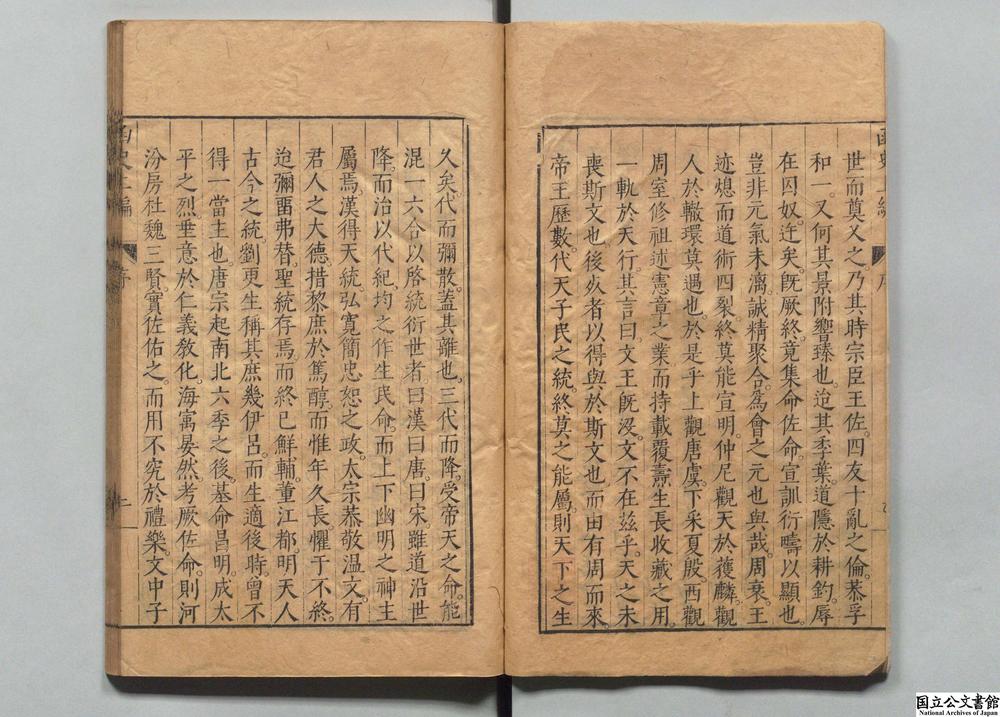 世而奠乂之乃其時宗臣王佐四友十亂之倫恭孚
和一又何其景附響臻也迨其季葉道隱於耕釣辱
在囚奴迕矣旣厥終竟集命佐命宣訓衍疇以顯也
豈非元氣未漓誠精聚合爲會之元也與哉周衰王
迹熄而道術四裂終莫能宣明仲尼觀天於獲麟觀
人於轍環莫遇也於是乎上觀唐虞下采夏殷西觀
周室修祖述憲章之業而持載覆燾生長收藏之用
一軌於天行其言曰文王旣沒文不在茲乎天之未
喪斯文也後死者以得與於斯文也而由有周而來
帝王歷數代天子民之統終莫之能屬則天下之生
久矣代而彌散蓋其離也三代而降受帝天之命能
混一六合以啓統衍世者曰漢曰唐曰宋雖道沿世
降而治以代紀均之作生民命而上下幽明之神主
屬焉漢得天統弘寬簡忠恕之政太宗恭敬溫文有
君人之大德措黎庶於篤醇而惟年久長懼于不終
迨彌留弗替聖統存焉而終已鮮輔董江都明天人
古今之統劉更生稱其庶幾伊呂而生適後時曾不
得一當主也唐宗起南北六季之後基命昌明成太
平之烈垂意於仁義敎化海寓晏然考厥佐命則河
汾房杜魏三賢實佐佑之而用不究於禮樂文中子
函史上編
序
二
国立公文書館
National Archives of Japan